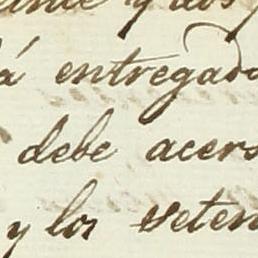 á entregado
debe acers
y los seten